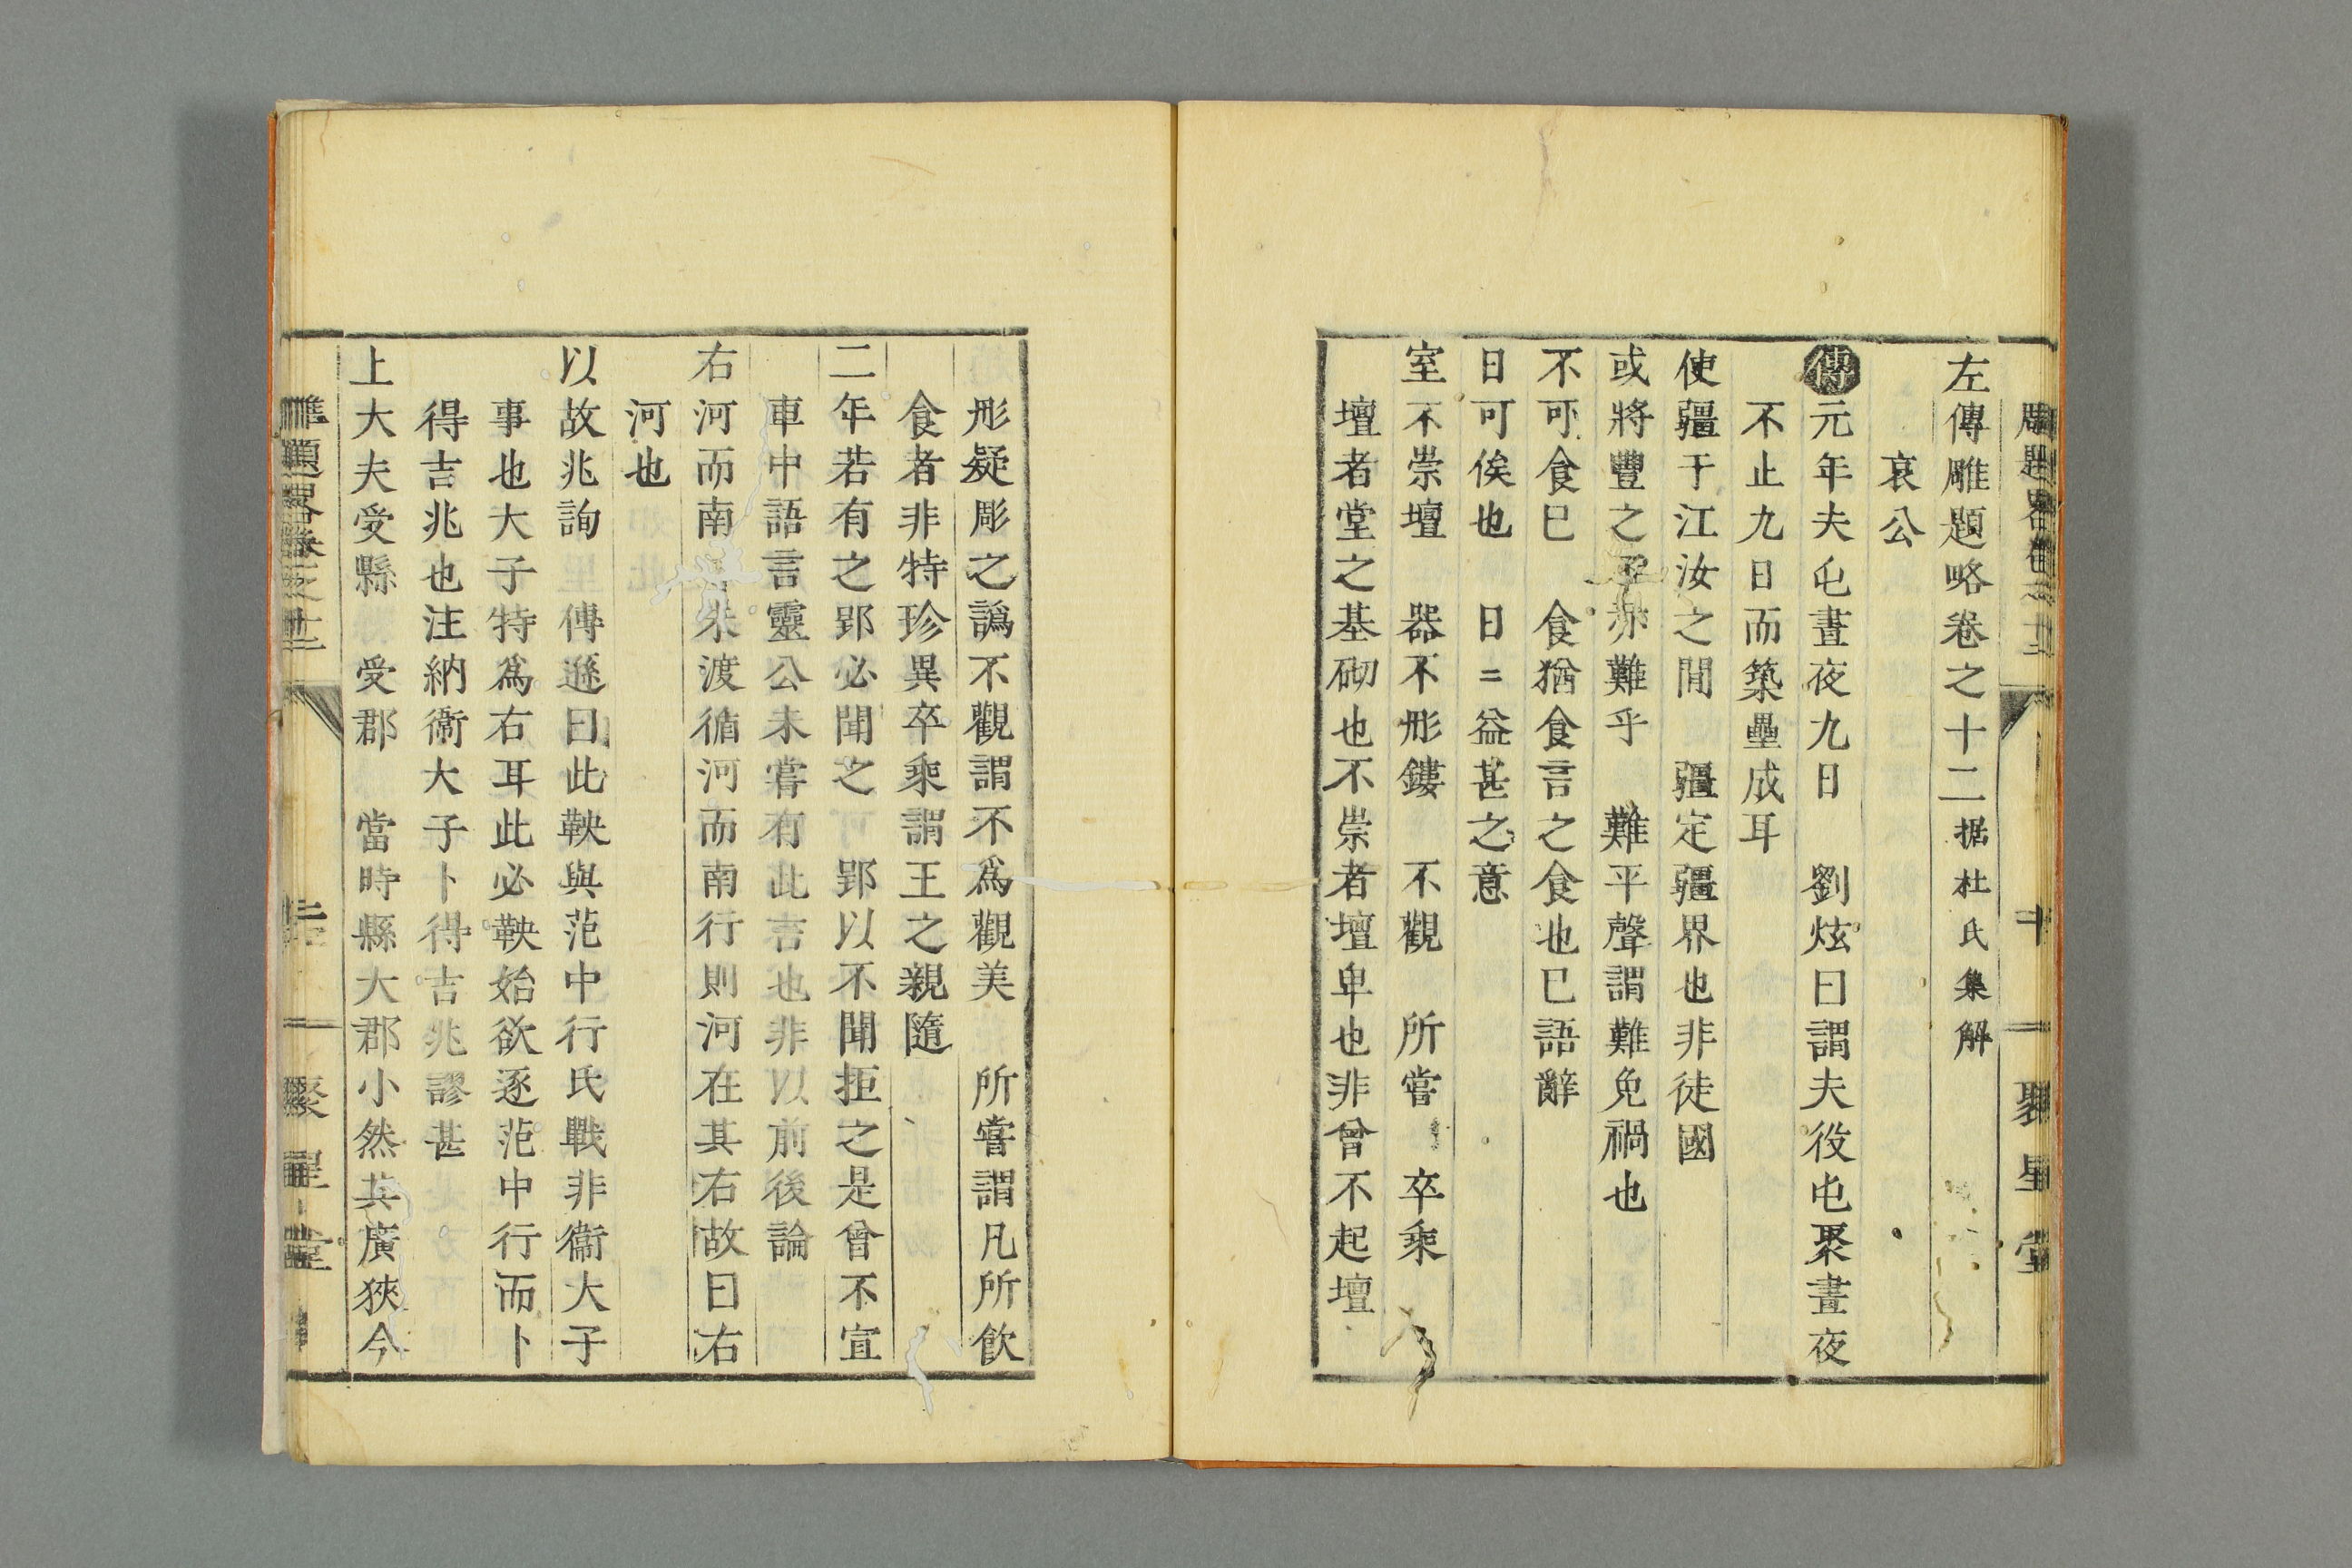 左傳雕題略卷之十二 据杜氏集解
哀公
傳元年夫屯晝夜九日　劉炫曰謂夫役屯聚晝夜
不止九日而築壘成耳
使疆于江汝之間　疆定疆界也非徒國
或將豐之不亦難乎　難平聲謂難免禍也
不可食已　食猶食言之食也已語辭
日可俟也　日二益甚之意
室不崇壇　器不彤鏤　不觀　所嘗　卒乘
壇者堂之基砌也不崇者壇卑也非曾不起壇
彤疑彫之譌不觀謂不爲觀美　所嘗謂凡所飲
食者非特珍異卒乘謂王之親隨
二年若有之郢必聞之　郢以不聞拒之是曾不宣
車中語言靈公未嘗有此言也非以前後論
右河而南　未渡循河而南行則河在其右故曰右
河也
以故兆詢　傳遜曰此鞅與范中行氏戰非衞大子
事也大子特爲右耳此必鞅始欲逐范中行而卜
得吉兆也注納衞大子卜得吉兆謬甚
上大夫受縣　受郡　當時縣大郡小然其廣狹今
聚星堂